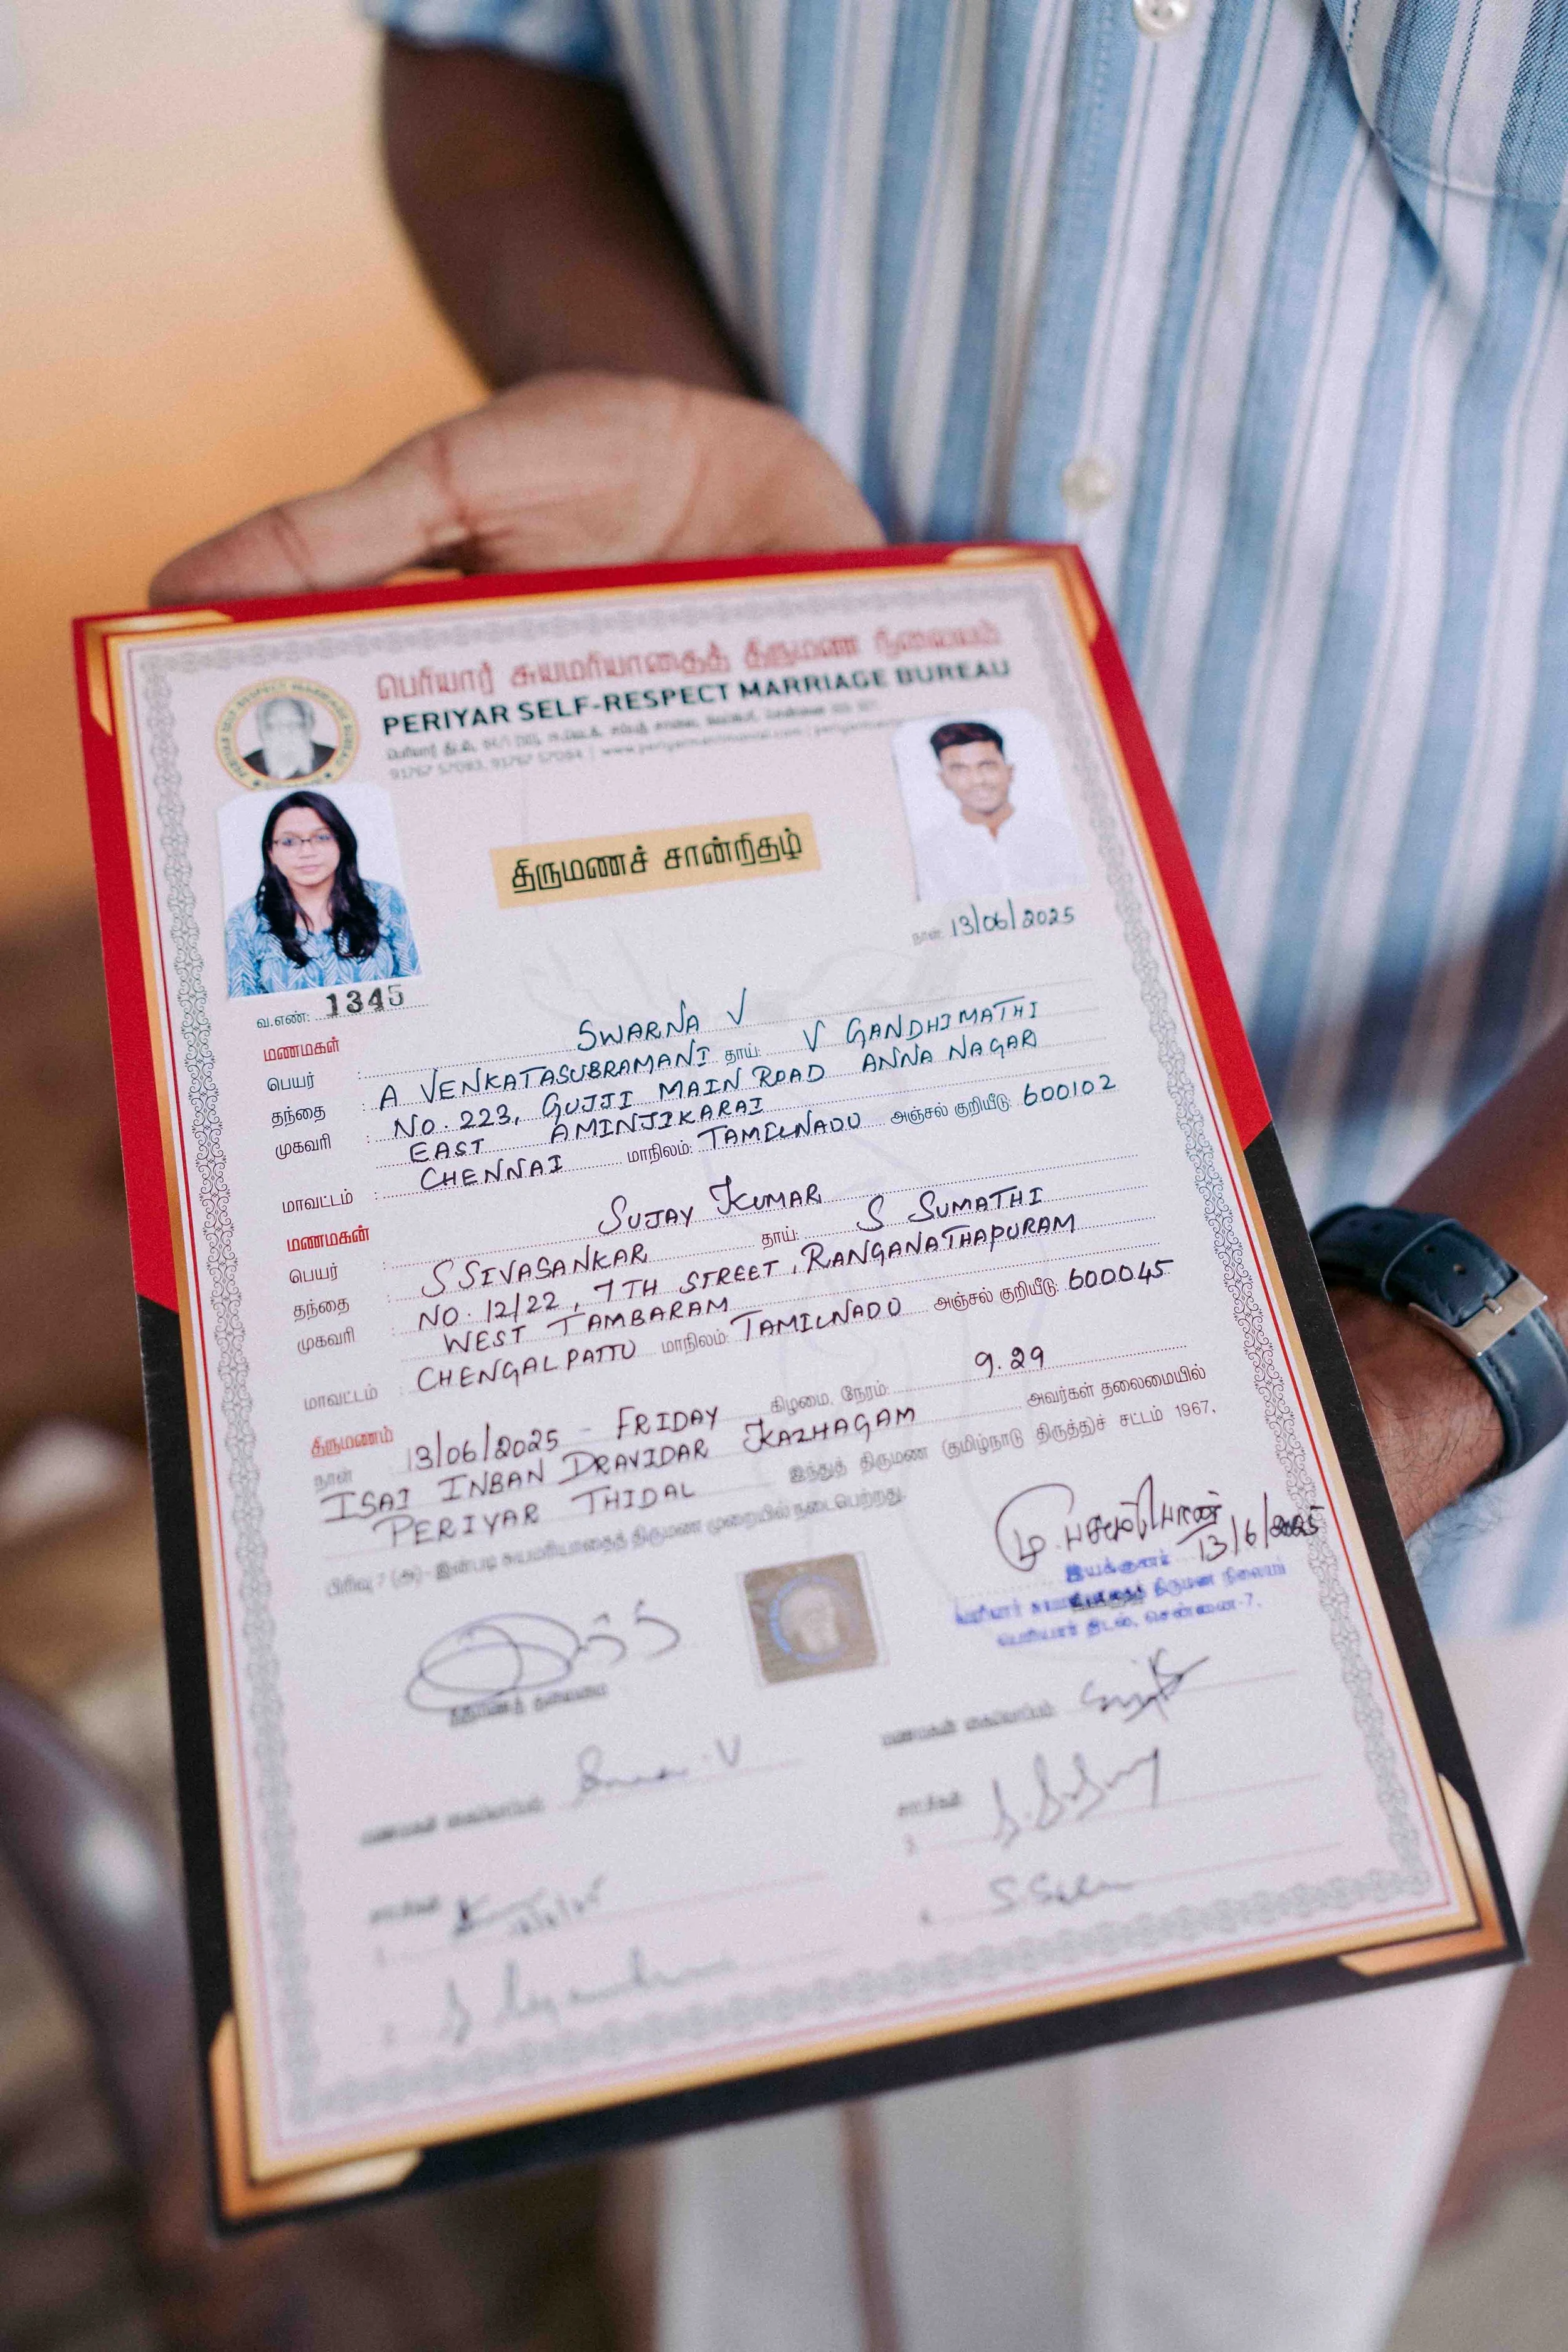 பெரியார் சுயமரியாதைத் திருமண நிலையம்
PERIYAR SELF-RESPECT MARRIAGE BUREAU
91767 57083, 91767 57084 | www.periyarmatrimonial.com
திருமணச் சான்றிதழ்
நாள்: 13/06/2025
வ.எண்: 1345
மணமகள்
பெயர் : SWARNA V
தந்தை : A VENKATASUBRAMANI தாய்: V GANDHIMATHI
முகவரி : NO. 223, GUJJI MAIN ROAD ANNA NAGAR
EAST AMINJIKARAI
மாவட்டம் : CHENNAI மாநிலம்: TAMILNADU அஞ்சல் குறியீடு: 600102
மணமகன்
பெயர் : SUJAY KUMAR
தந்தை : S SIVASANKAR தாய்: S SUMATHI
முகவரி : NO. 12/22, 7TH STREET, RANGANATHAPURAM
WEST TAMBARAM
மாவட்டம் : CHENGALPATTU மாநிலம்: TAMILNADU அஞ்சல் குறியீடு: 600045
திருமணம்
நாள் 13/06/2025 - FRIDAY கிழமை, நேரம்: 9.29
ISAI INBAN DRAVIDAR KAZHAGAM அவர்கள் தலைமையில்
PERIYAR THIDAL இந்துத் திருமண (தமிழ்நாடு திருத்துச் சட்டம் 1967,
பிரிவு 7 (அ)-இன்படி சுயமரியாதைத் திருமண முறையில் நடைபெற்றது.
13/6/2025
இயக்குனர்
பெரியார் சுயமரியாதைத் திருமண நிலையம்
பெரியார் திடல், சென்னை-7.
மணமகன் கையொப்பம்:
மணமகள் கையொப்பம்:
சாட்சிகள்
சாட்சிகள்